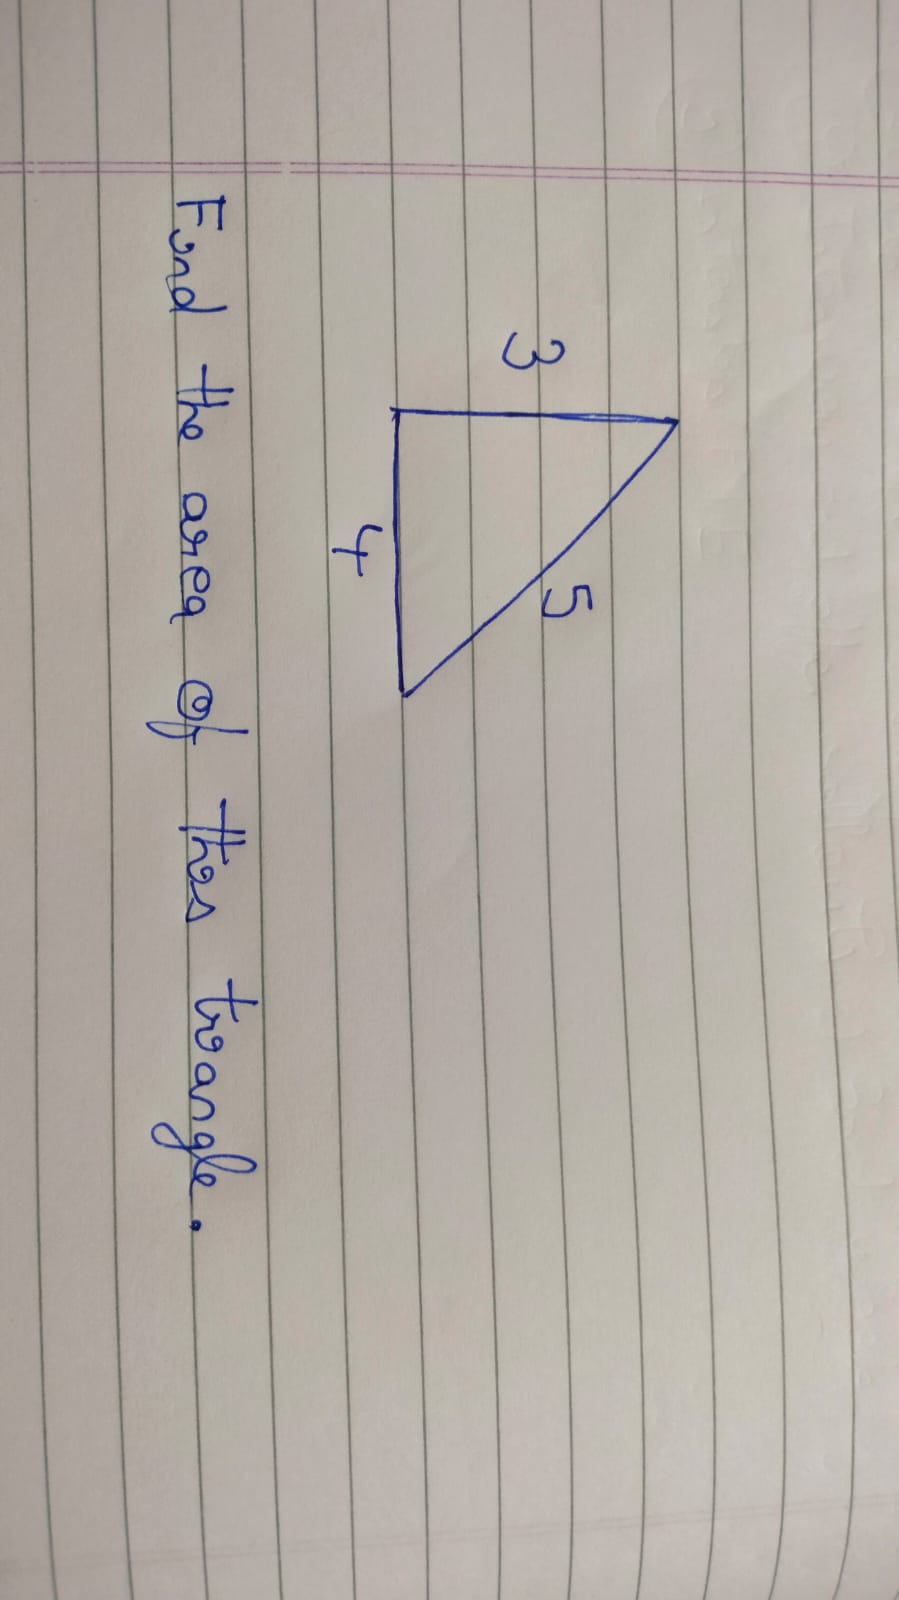 3
5
4
Find the area of this triangle.